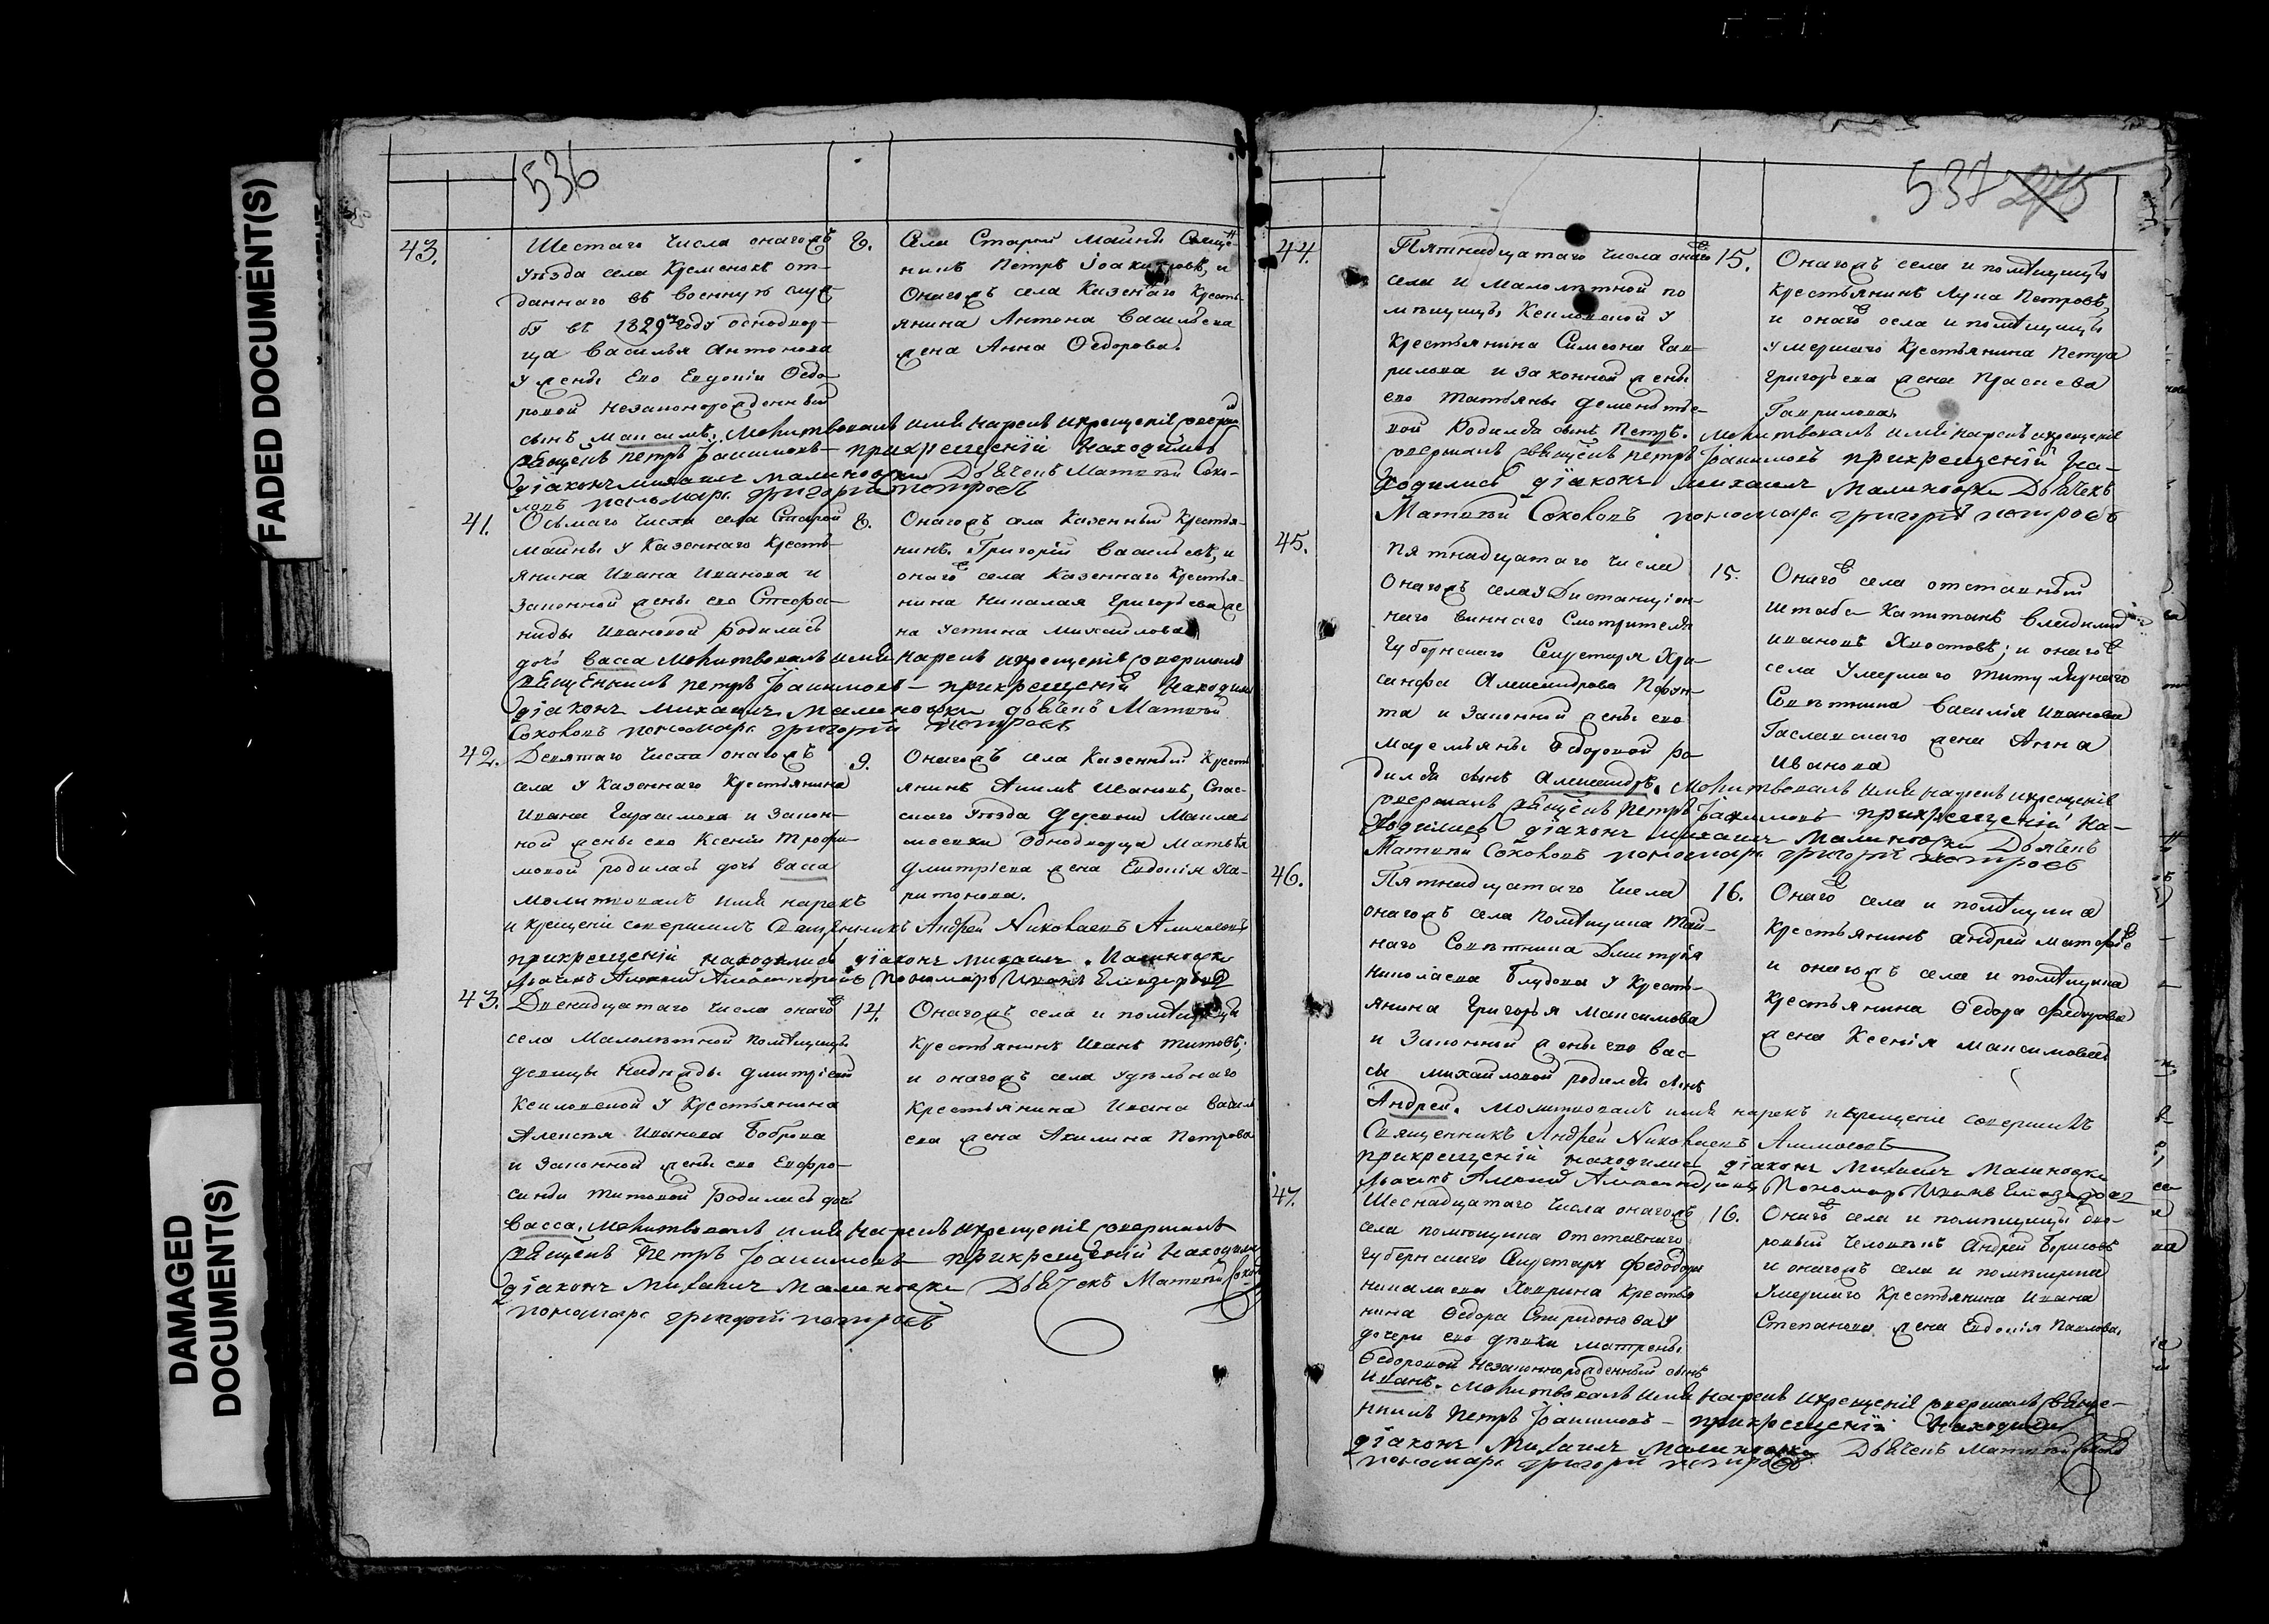 FADED DOCUMENT(S)
DAMAGED
DOCUMENT(S)
536
43.
Шестаго числа онагожъ
уѣзда села Кременокъ от-
даннаго въ военную служ
бу въ 1829мъ году однодвор-
ца Василья Антонова
у жены его Евдокіи Ѳедо-
ровой незаконорожденный
сынъ Максимъ. Молитвовалъ имя нарекъ и крещеніе
священ Петръ Іоакимовъ — при крещеніи находились
діаконъ Михаилъ Малиновски Дьячекъ Матвей Соко-
ловъ пономарь григорій петровъ
Села Старой Майны Свяще-
никъ Петръ Іоакимовъ, и
онагожъ села Казеннаго крестьі-
янина Антона Васильева
жена Анна Ѳедорова.
41.
Осьмаго числа села Старой
Майны у Казеннаго Кресть-
янина Ивана Иванова и
законной жены его Стефа-
ниды Ивановой родилась
дочь Васса Молитвовалъ имя нарекъ и крещеніе совершалъ
священникъ петръ Іоакимовъ — при крещеніи находились
діаконъ Михаилъ Малиновски дьячекъ Матвей
Соколовъ пономарь григорій петровъ
Онагожъ села Казенный Крестья-
нинъ Григорій Васильевъ, и
онаго села Казеннаго Крестья-
нина Николая Григорьева же
на Устина Михайлова
42.
Девятаго числа онагожъ
села у Казеннаго Крестьянина
Ивана Герасимова и закон-
ной жены его Ксеніи Трофи-
мовой родилась дочь Васса
молитвовалъ имя нарекъ
и крещеніе совершилъ Священникъ Андрей Николаевъ
при крещеніи находились діаконъ Михаилъ Малиновски
дьячекъ Алексей пономарь Иванъ
9.
Онагожъ села Казенный Кресть
янинъ Акимъ Ивановъ, Спас-
скаго уѣзда деревни
Однодворца Матвѣя
Дмитріева жена Евдокія Ха-
ритонова.
43.
Двенадцатаго числа онаго
села Малолѣтной помѣщицы
девицы Надежды Дмитріевой
у Крестьянина
Алексѣя Иванова Боброва
и законной жены его Евфро-
синьи Титовой родилась дочь
Васса. Молитвовалъ имя нарекъ и крещеніе совершалъ
священ Петръ Іоакимовъ при крещеніи находились
діаконъ Михаилъ Малиновски Дьячекъ Матвей
пономарь григорій петровъ
14.
Онагожъ села и помѣщицы
крестьянинъ Иванъ Титовъ;
и онагожъ села удѣльнаго
крестьянина Ивана Василь
ева жена Акилина Петрова
537
44.
Пятнадцатаго числа онаго
села и Малолѣтной по
мѣщицы у
крестьянина Симеона Гав-
рилова и законной жены
его Татьяны Дементье-
вой Родился сынъ Петръ. Молитвовалъ имя нарекъ и крещеніе
совершалъ священ петръ Іоакимовъ при крещеніи на-
ходились діаконъ Михаилъ Малиновски Дьячекъ
Матвей Соколовъ пономарь григорій петровъ
15.
Онагожъ села и помѣщицы
крестьянинъ Лука Петровъ,
и онаго села и помѣщицы
умершаго Крестьянина Петра
Григорьева жена
Гаврилова.
45.
Пятнадцатаго числа
Онагожъ села у Дистанціон-
наго виннаго Смотрителя
Губернскаго Секретаря Хри-
санфа Александрова
та и законной жены его
Маремьяны Ѳедоровой ро-
дился сынъ Александръ. Молитвовалъ имя нарекъ и крещеніе
совершалъ священ петръ Іоакимовъ при крещеніи на-
ходились діаконъ Михаилъ Малиновски Дьячекъ
Матвей Соколовъ пономарь григорій петровъ
15.
Онаго села отставный
Штабс Капитанъ Владимиръ
Ивановъ Хвостовъ; и онаго
села умершаго Титулярнаго
Совѣтника Василія Иванова
жена Анна
Иванова
46.
Пятнадцатаго числа
онагожъ села помѣщика Тай-
наго Совѣтника Дмитрія
Николаева Блудова у Кресть-
янина Григорья Максимова
и Законной жены его Вас-
сы Михайловой родился сынъ
Андрей. молитвовалъ имя нарекъ и крещеніе совершилъ
Священникъ Андрей Николаевъ
при крещеніи находились діаконъ Михаилъ Малиновски
дьячекъ Алексей пономарь Иванъ
16.
Онаго села и помѣщика
Крестьянинъ Андрей
и онагожъ села и помѣщика
крестьянина Ѳедора Федорова
жена Ксенія Максимова
47.
Шеснадцатаго числа онагожъ
села помѣщика отставнаго
губернскаго Секретаря Федора
Николаева Крестья
нина Ѳедора Спиридонова у
дочери его девки Матрены
Ѳедоровой незаконнорожденный сынъ
Иванъ. Молитвовалъ имя нарекъ и крещеніе совершалъ свяще-
никъ Петръ Іоакимовъ — при крещеніи находились
діаконъ Михаилъ Малиновски Дьячекъ Матвей
пономарь григорій петровъ
16.
Онаго села и помѣщицы дво-
ровый человѣкъ Андрей Борисовъ
и онагожъ села и помѣщика
Умершаго Крестьянина Ивана
Степанова жена Евдокія Павлова.